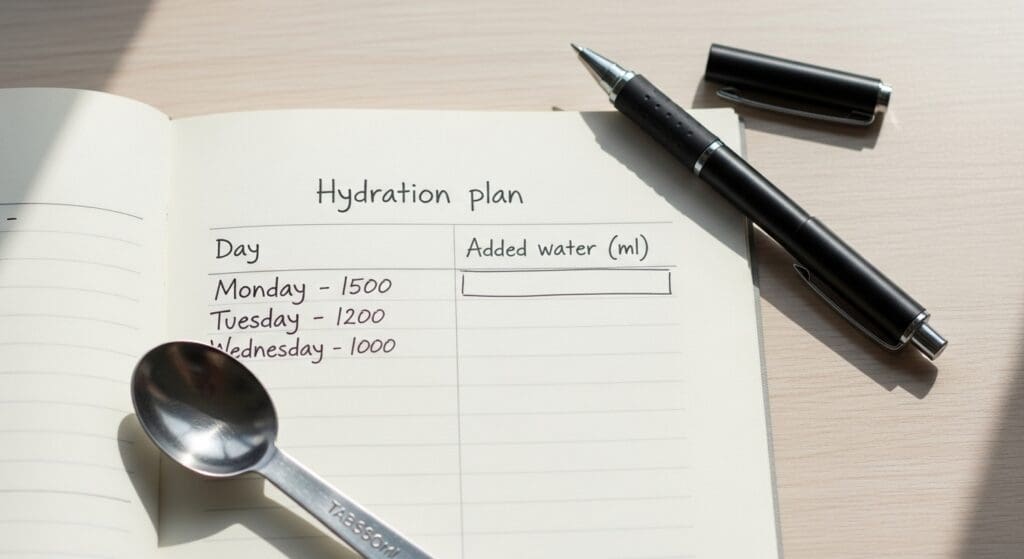 Hydration plan
Day Added water (ml)
Monday - 1500
Tuesday - 1200
Wednesday - 1000